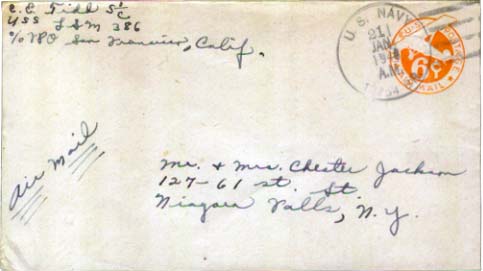 C. E. Fidd S 1/c
USS LSM 386
c/o FPO San Francisco, Calif.
U. S. NAVY
21
JAN
A.M.
U.S. POSTAGE
6¢
AIR MAIL
Air Mail
Mr. + Mrs. Chester Jackson
127-61 st. St
Niagara Falls, N.Y.